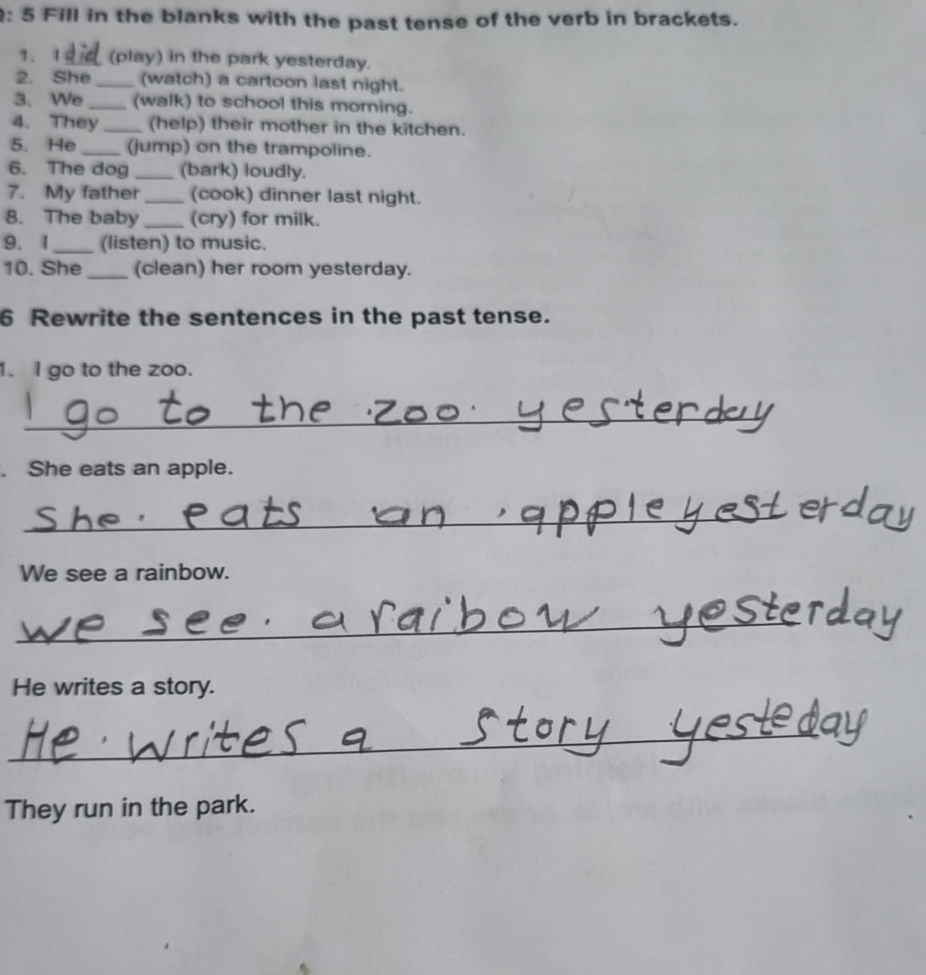 : 5 Fill in the blanks with the past tense of the verb in brackets.
1. I did (play) in the park yesterday.
2. She ____ (watch) a cartoon last night.
3. We ____ (walk) to school this morning.
4. They ____ (help) their mother in the kitchen.
5. He ____ (jump) on the trampoline.
6. The dog ____ (bark) loudly.
7. My father ____ (cook) dinner last night.
8. The baby ____ (cry) for milk.
9. I ____ (listen) to music.
10. She ____ (clean) her room yesterday.
6 Rewrite the sentences in the past tense.
1. I go to the zoo.
I go to the zoo. yesterday
. She eats an apple.
She. eats an apple yesterday
We see a rainbow.
We see. a raibow yesterday
He writes a story.
He. writes a story yesteday
They run in the park.